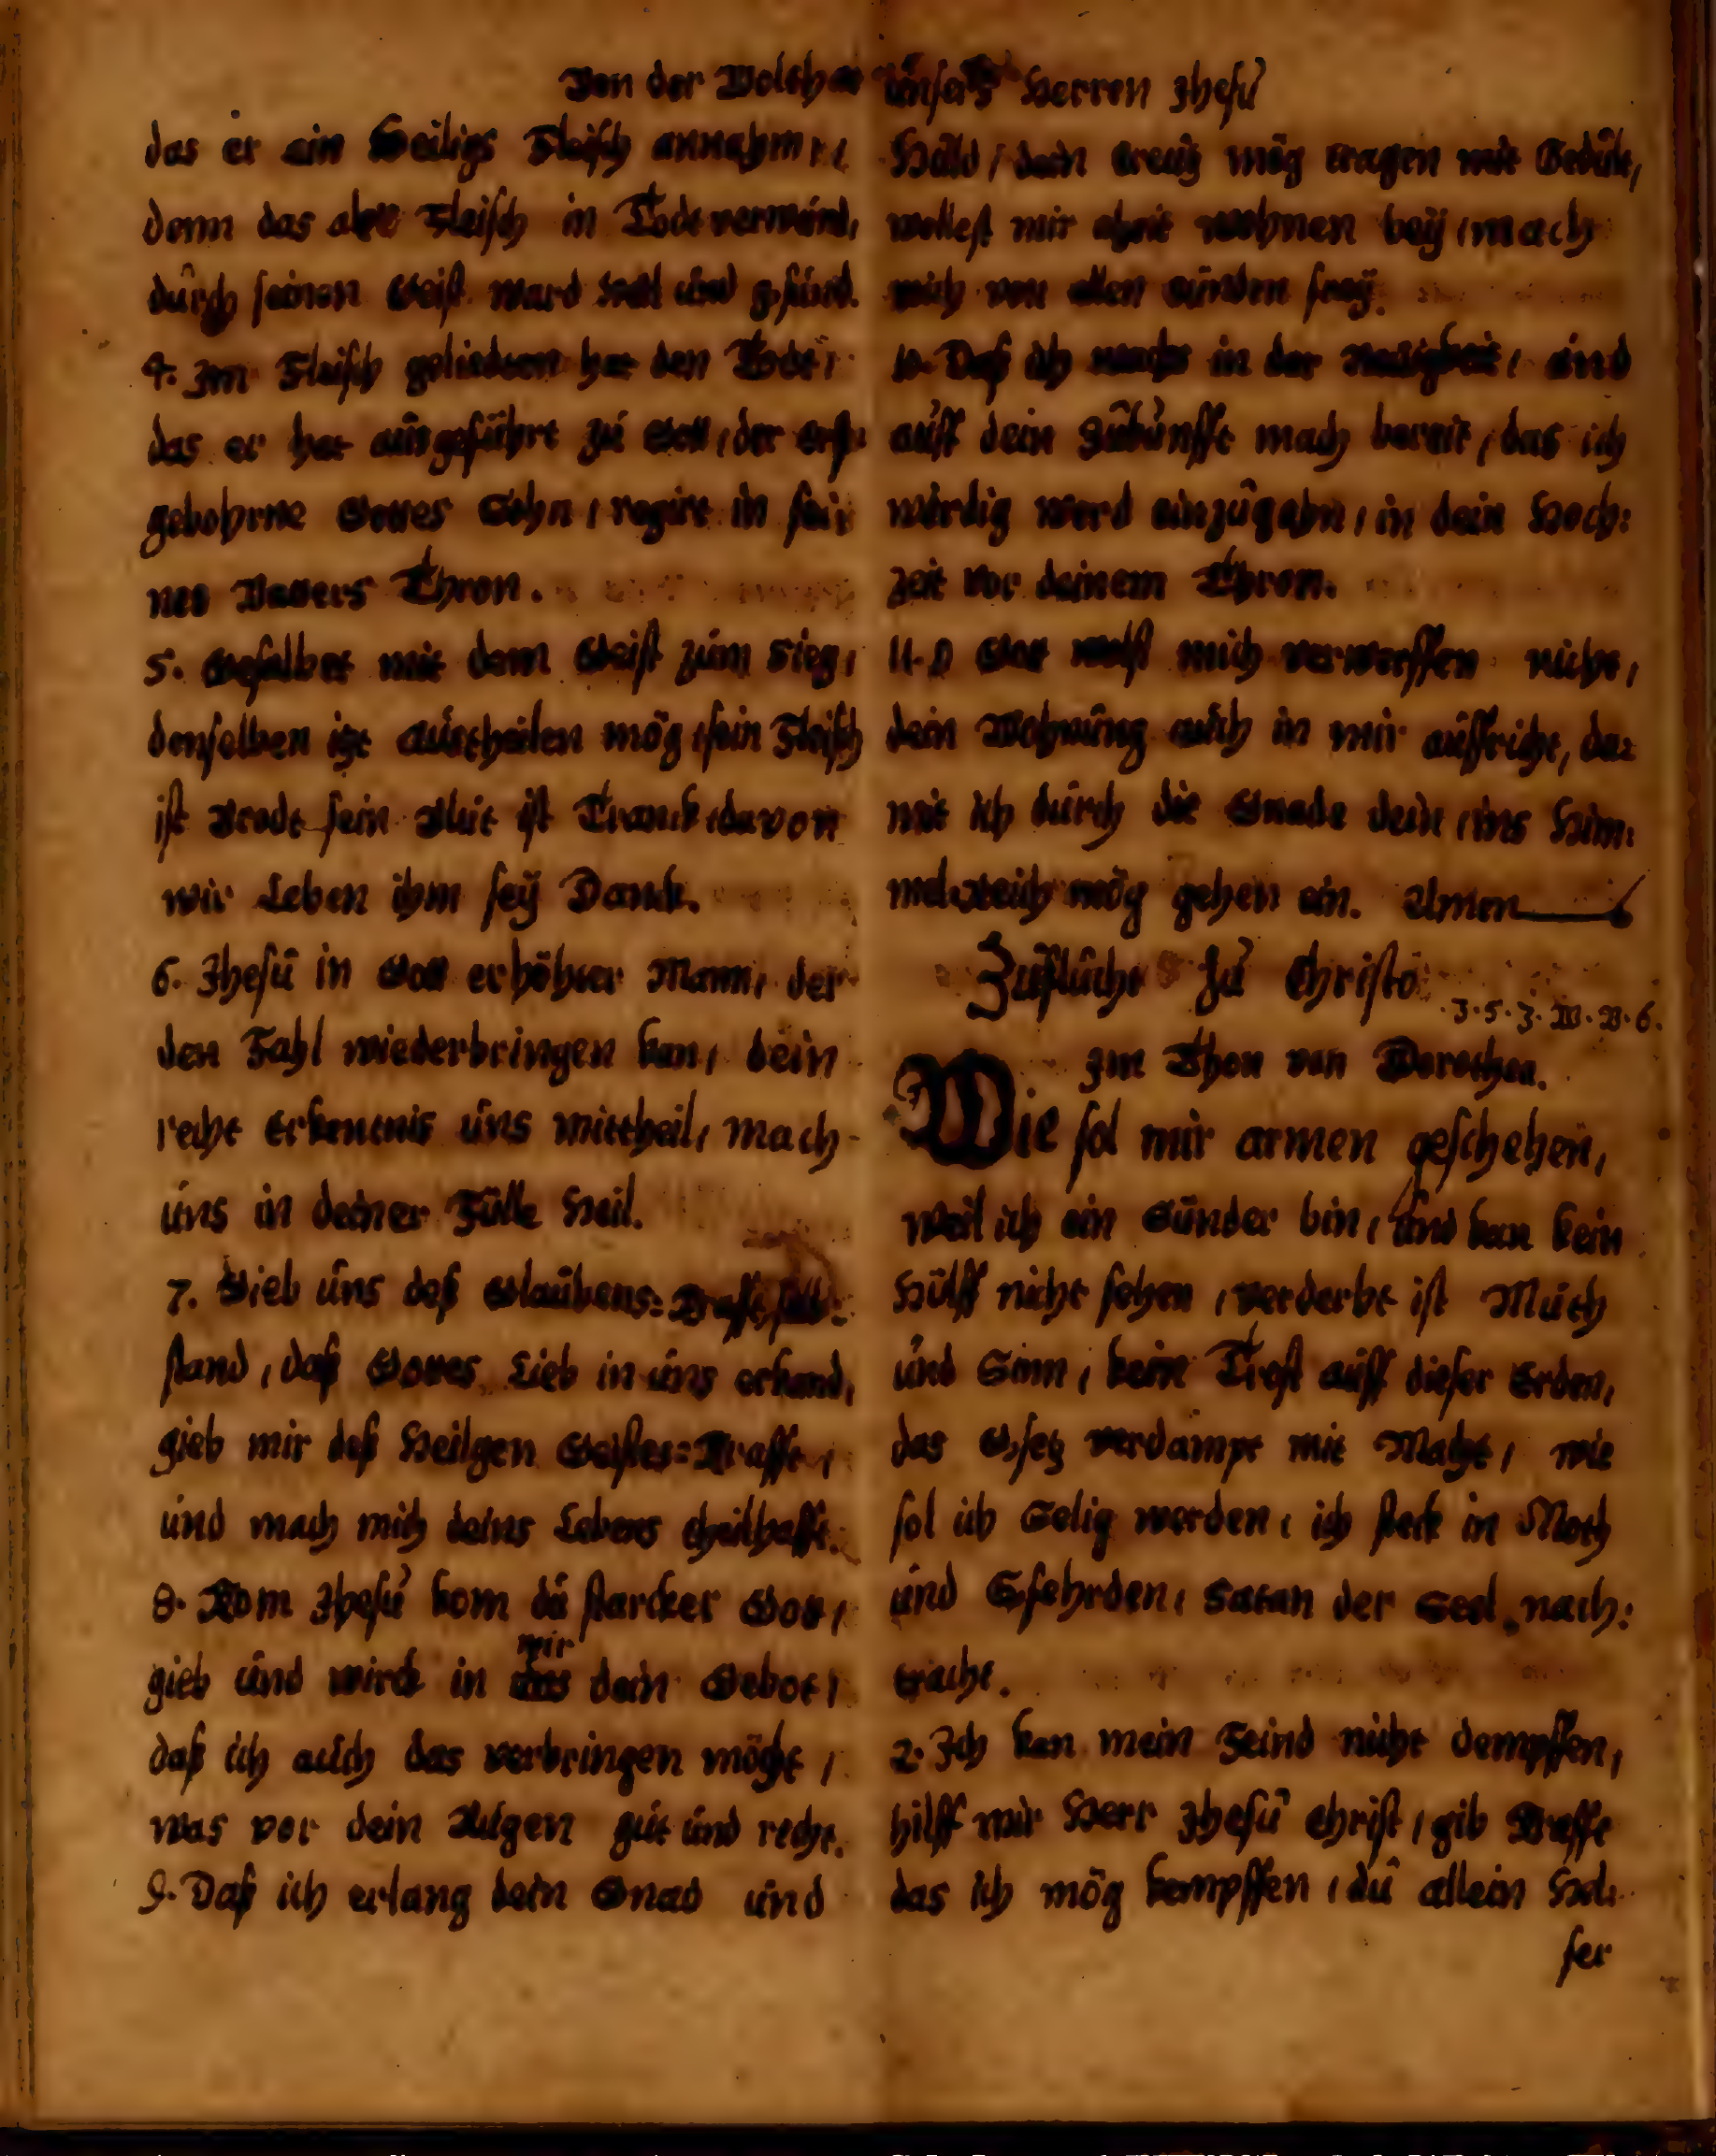 Von der unsers Herren Jhesu
das er ein Heiligs Fleisch annahm,
denn das alte Fleisch in Tode verwund,
durch seinen Geist ward Heil und gsund.
4. Im Fleisch geliedten hat den Tode,
das er hat ausgeführt zu Gott, der erst
gebohrne Gottes Sohn, regirt in sei:
nes Vatters Thron.
5. Gesalbet mit dem Geist zum Sieg,
denselben itzt austheilen mög, sein Fleisch
ist Brodt sein Blut ist Tranck, davon
wir Leben ihm seÿ Danck.
6. Jhesu in Gott erhöhter Mann, der
den Fahl wiederbringen kan, dein
recht Erkentnis uns mittheil, mach
uns in deiner Fülle Heil.
7. Gieb uns deß Glaubens=
stand, daß Gottes Lieb in uns erkand,
gieb mir deß Heilgen Geistes=Krafft,
und mach mich deins Lebens theilhafft.
8. Kom Jhesu kom du starcker Gott,
mir
gieb und wirck in uns dein Gebot,
daß ich auch das verbringen möcht,
was vor dein Augen gut und recht.
9. Daß ich erlang dein Gnad und
Huld, dein Creutz mög tragen mit Gedult,
wollest mir allzeit wohnen beÿ, mach
mich von allen Sünden freÿ.
10. Daß ich wachs in der und
auff dein Zukunfft mach bereit, das ich
würdig werd einzugehn, in dein Hoch:
zeit vor deinem Thron.
11. O Gott wollst mich verwerffen nicht,
dein Wohnung auch in mir auffricht, da:
mit ich durch die Gnade dein, ins Him:
mel=Reich mög gehen ein. Amen
Zuflucht zu Christo
. J. 5. J. W. B. 6.
Im Thon von Dorothea.
Wie sol mir armen geschehen,
weil ich ein Sünder bin, und kan kein
Hülff nicht sehen, verderbt ist Muth
und Sinn, kein Trost auff dieser Erden,
das Gsetz verdampt mit Macht, wie
sol ich Selig werden, ich steck in Noth
und Gfehrden, Satan der Seel nach:
tracht.
2. Ich kan mein Feind nicht dempffen,
hilff mir Herr Jhesu Christ, gib Krafft
das ich mög kempffen, du allein Hel:
fer